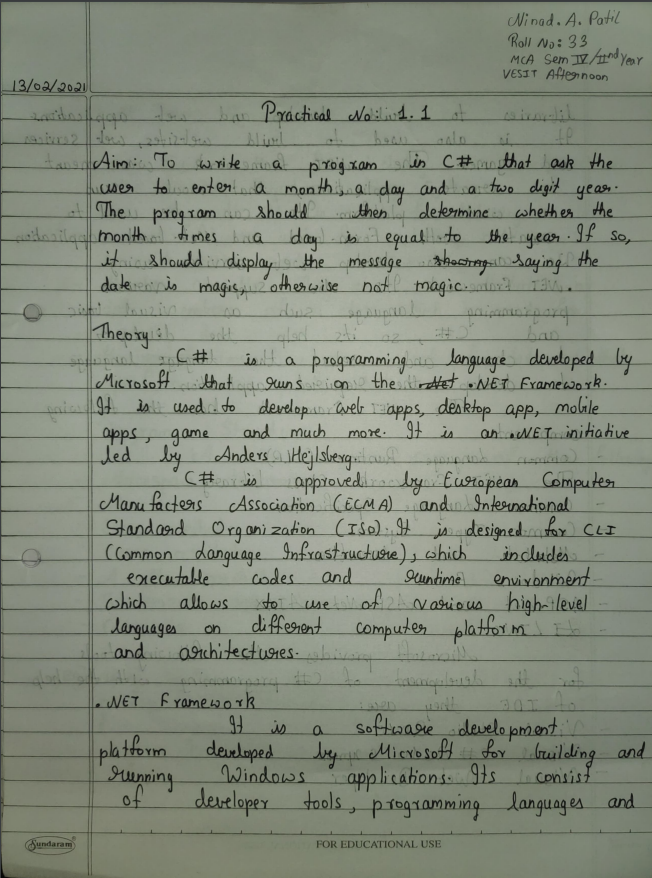 Ninad. A. Patil
Roll No: 33
MCA Sem IV/IInd year
VESIT Afternoon
13/02/2021
Practical No: 1.1
Aim: To write a program in C# that ask the
user to enter a month, a day and a two digit year.
The program should then determine whether the
month times a day is equal to the year. If so,
it should display the message showing saying the
date is magic, otherwise not magic.
Theory:
C# is a programming language developed by
Microsoft that runs on the .Net .NET Framework.
It is used to develop web apps, desktop app, mobile
apps, game and much more. It is an .NET initiative
led by Anders Hejlsberg.
C# is approved by European Computer
Manufacters Association (ECMA) and International
Standard Organization (ISO). It is designed for CLI
(Common Language Infrastructure), which includes
executable codes and runtime environment
which allows to use of various high-level
languages on different computer platform
and architectures.
.NET Framework
It is a software development
platform developed by Microsoft for building and
running Windows applications. Its consist
of developer tools, programming languages and
Sundaram
FOR EDUCATIONAL USE